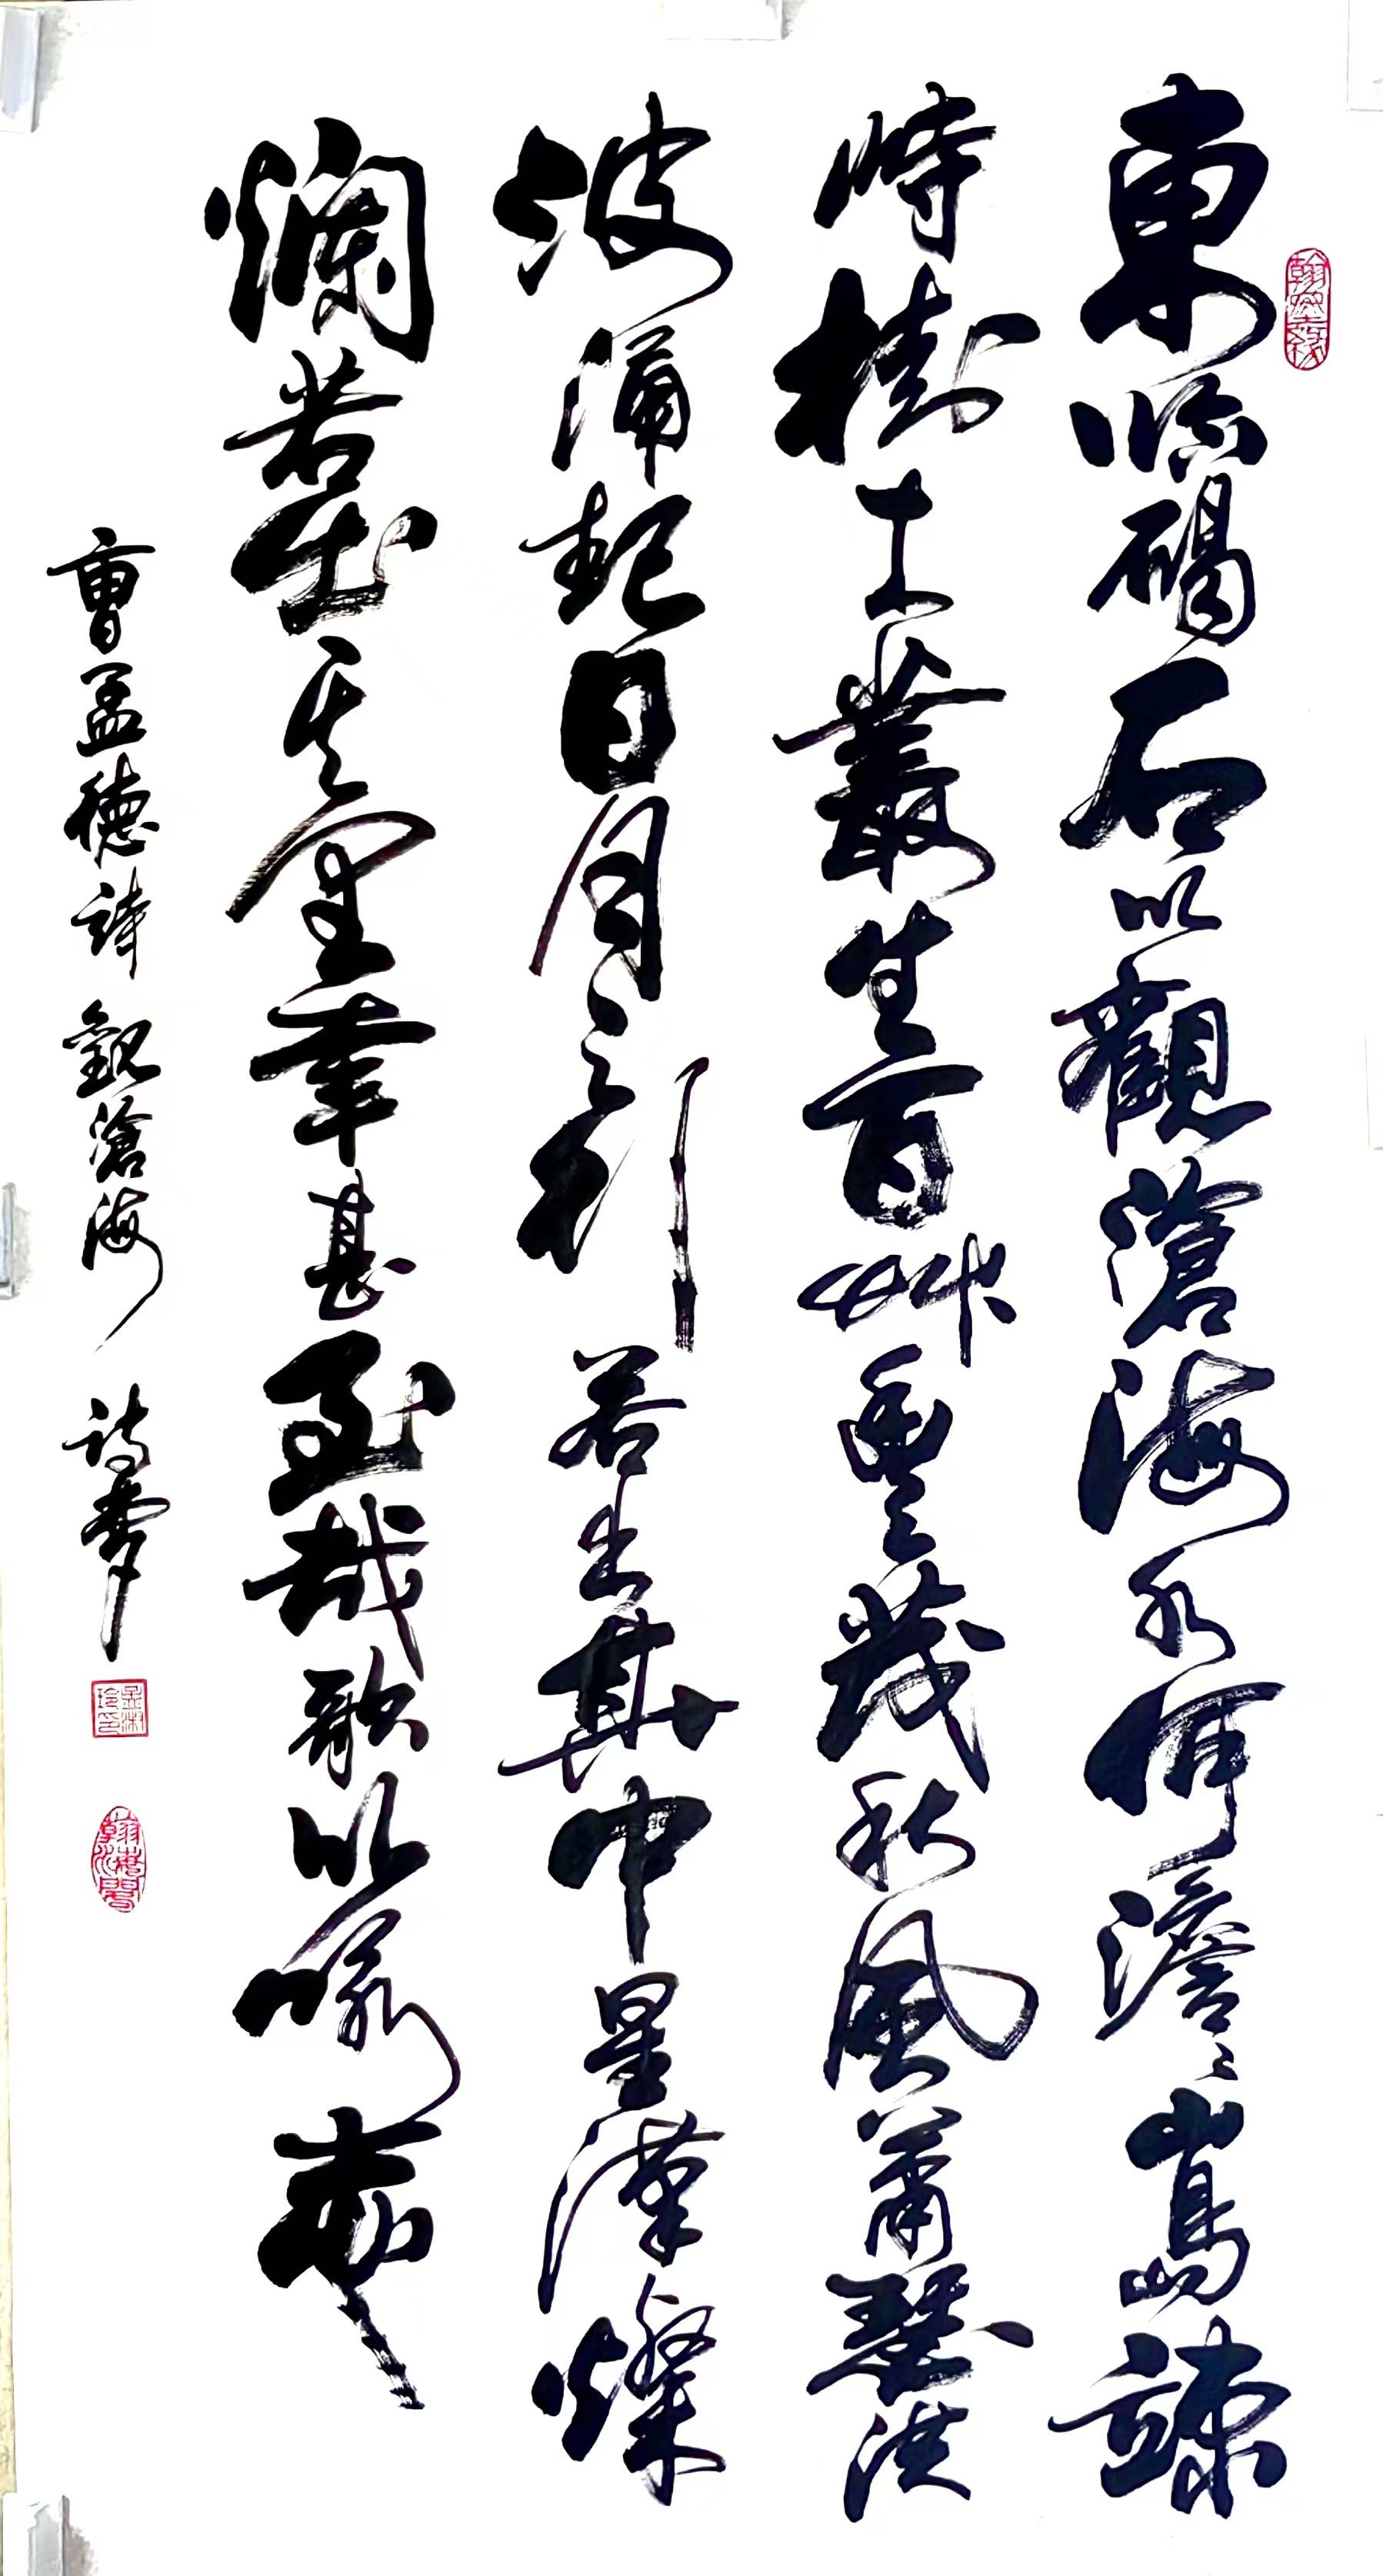 翰墨緣
東臨碣石以觀滄海水何澹々山島竦
峙樹木叢生百艸豐茂秋風蕭瑟洪
波涌起日月之行若出其中星漢燦
爛若出其裏幸甚至哉歌以詠志
曹孟德詩觀滄海 詩夢
孟淑玲印